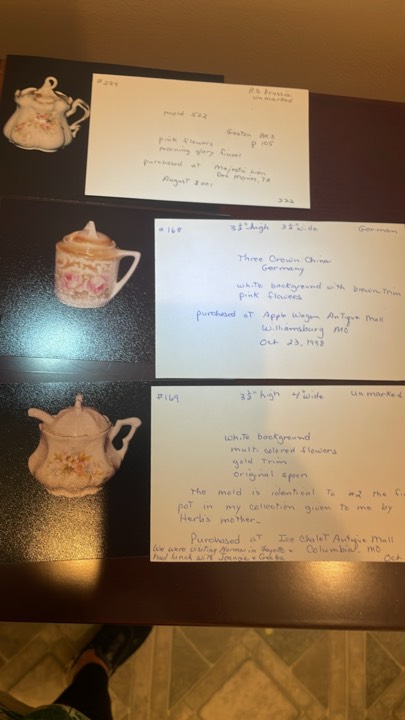 #279
R.S. Prussia
unmarked
mold 522
Gaston BK3
p 105
pink flowers
morning glory finial
purchased at Majestic Lion
Des Moines, IA
August 2001
222
#168 3½" high 3½" wide German
Three Crown China
Germany
white background with brown trim
pink flowers
purchased at Apple Wagon Antique Mall
Williamsburg MO
Oct 23, 1998
#169 3½" high 4" wide unmarked
white background
multi colored flowers
gold trim
original spoon
The mold is identical to #2 the fi
pot in my collection given to me by
Herb's mother.
Purchased at Ice Chalet Antique Mall
Columbia, MO
We were visiting Norma in Fayette &
had lunch with Jeannie &
Oct